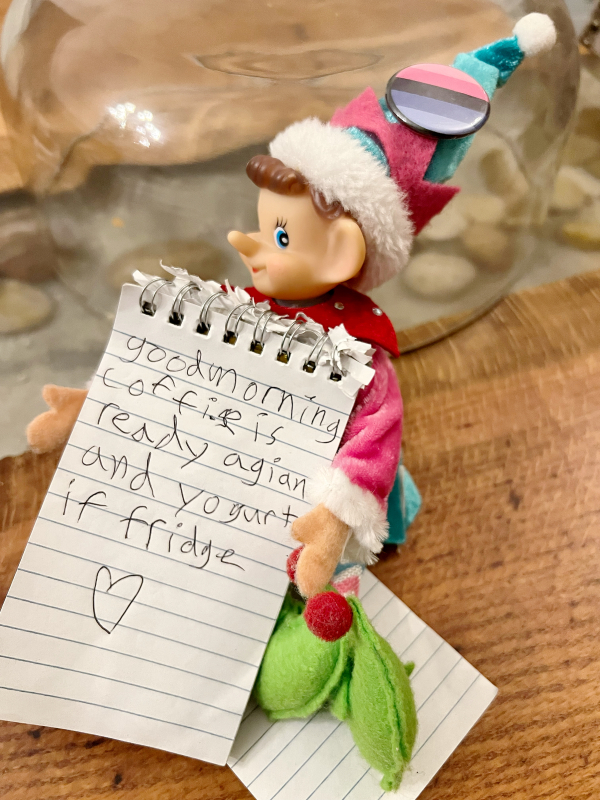 goodmorning
coffie is
ready agian
and yogurt
if fridge